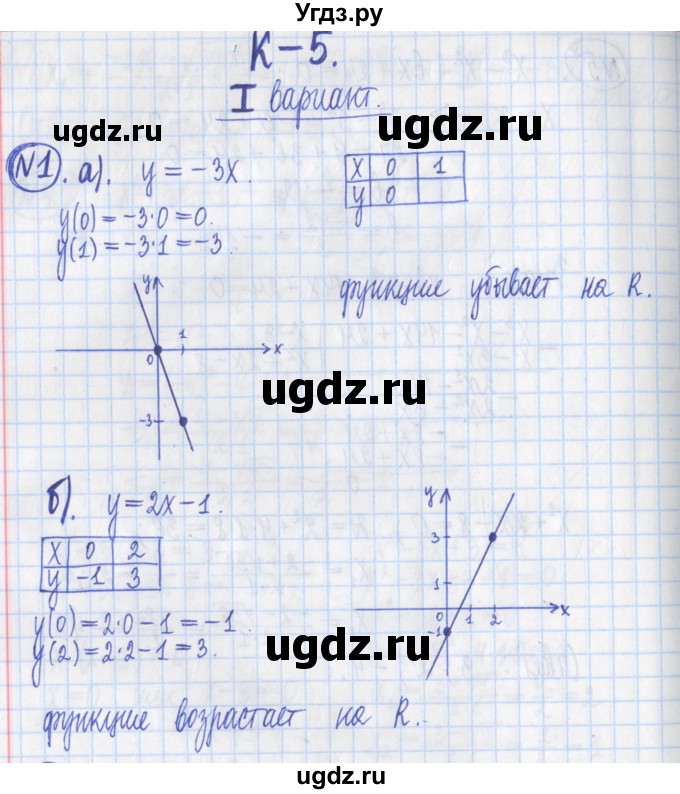 Угдз.ру
К-5.
I вариант.
ugdz.ru ugdz.ru
№1. а). y = -3x.
x 0 1
y 0
y(0) = -3·0 = 0.
y(1) = -3·1 = -3.
функцие убывает на R.
y
0 1 x
-3
ugdz.ru ugdz.ru
б). y = 2x - 1.
x 0 2
y -1 3
y
3
1
0 1 2 x
-1
y(0) = 2·0 - 1 = -1.
y(2) = 2·2 - 1 = 3.
ugdz.ru ugdz.ru
функцие возрастает на R.
ugdz.ru